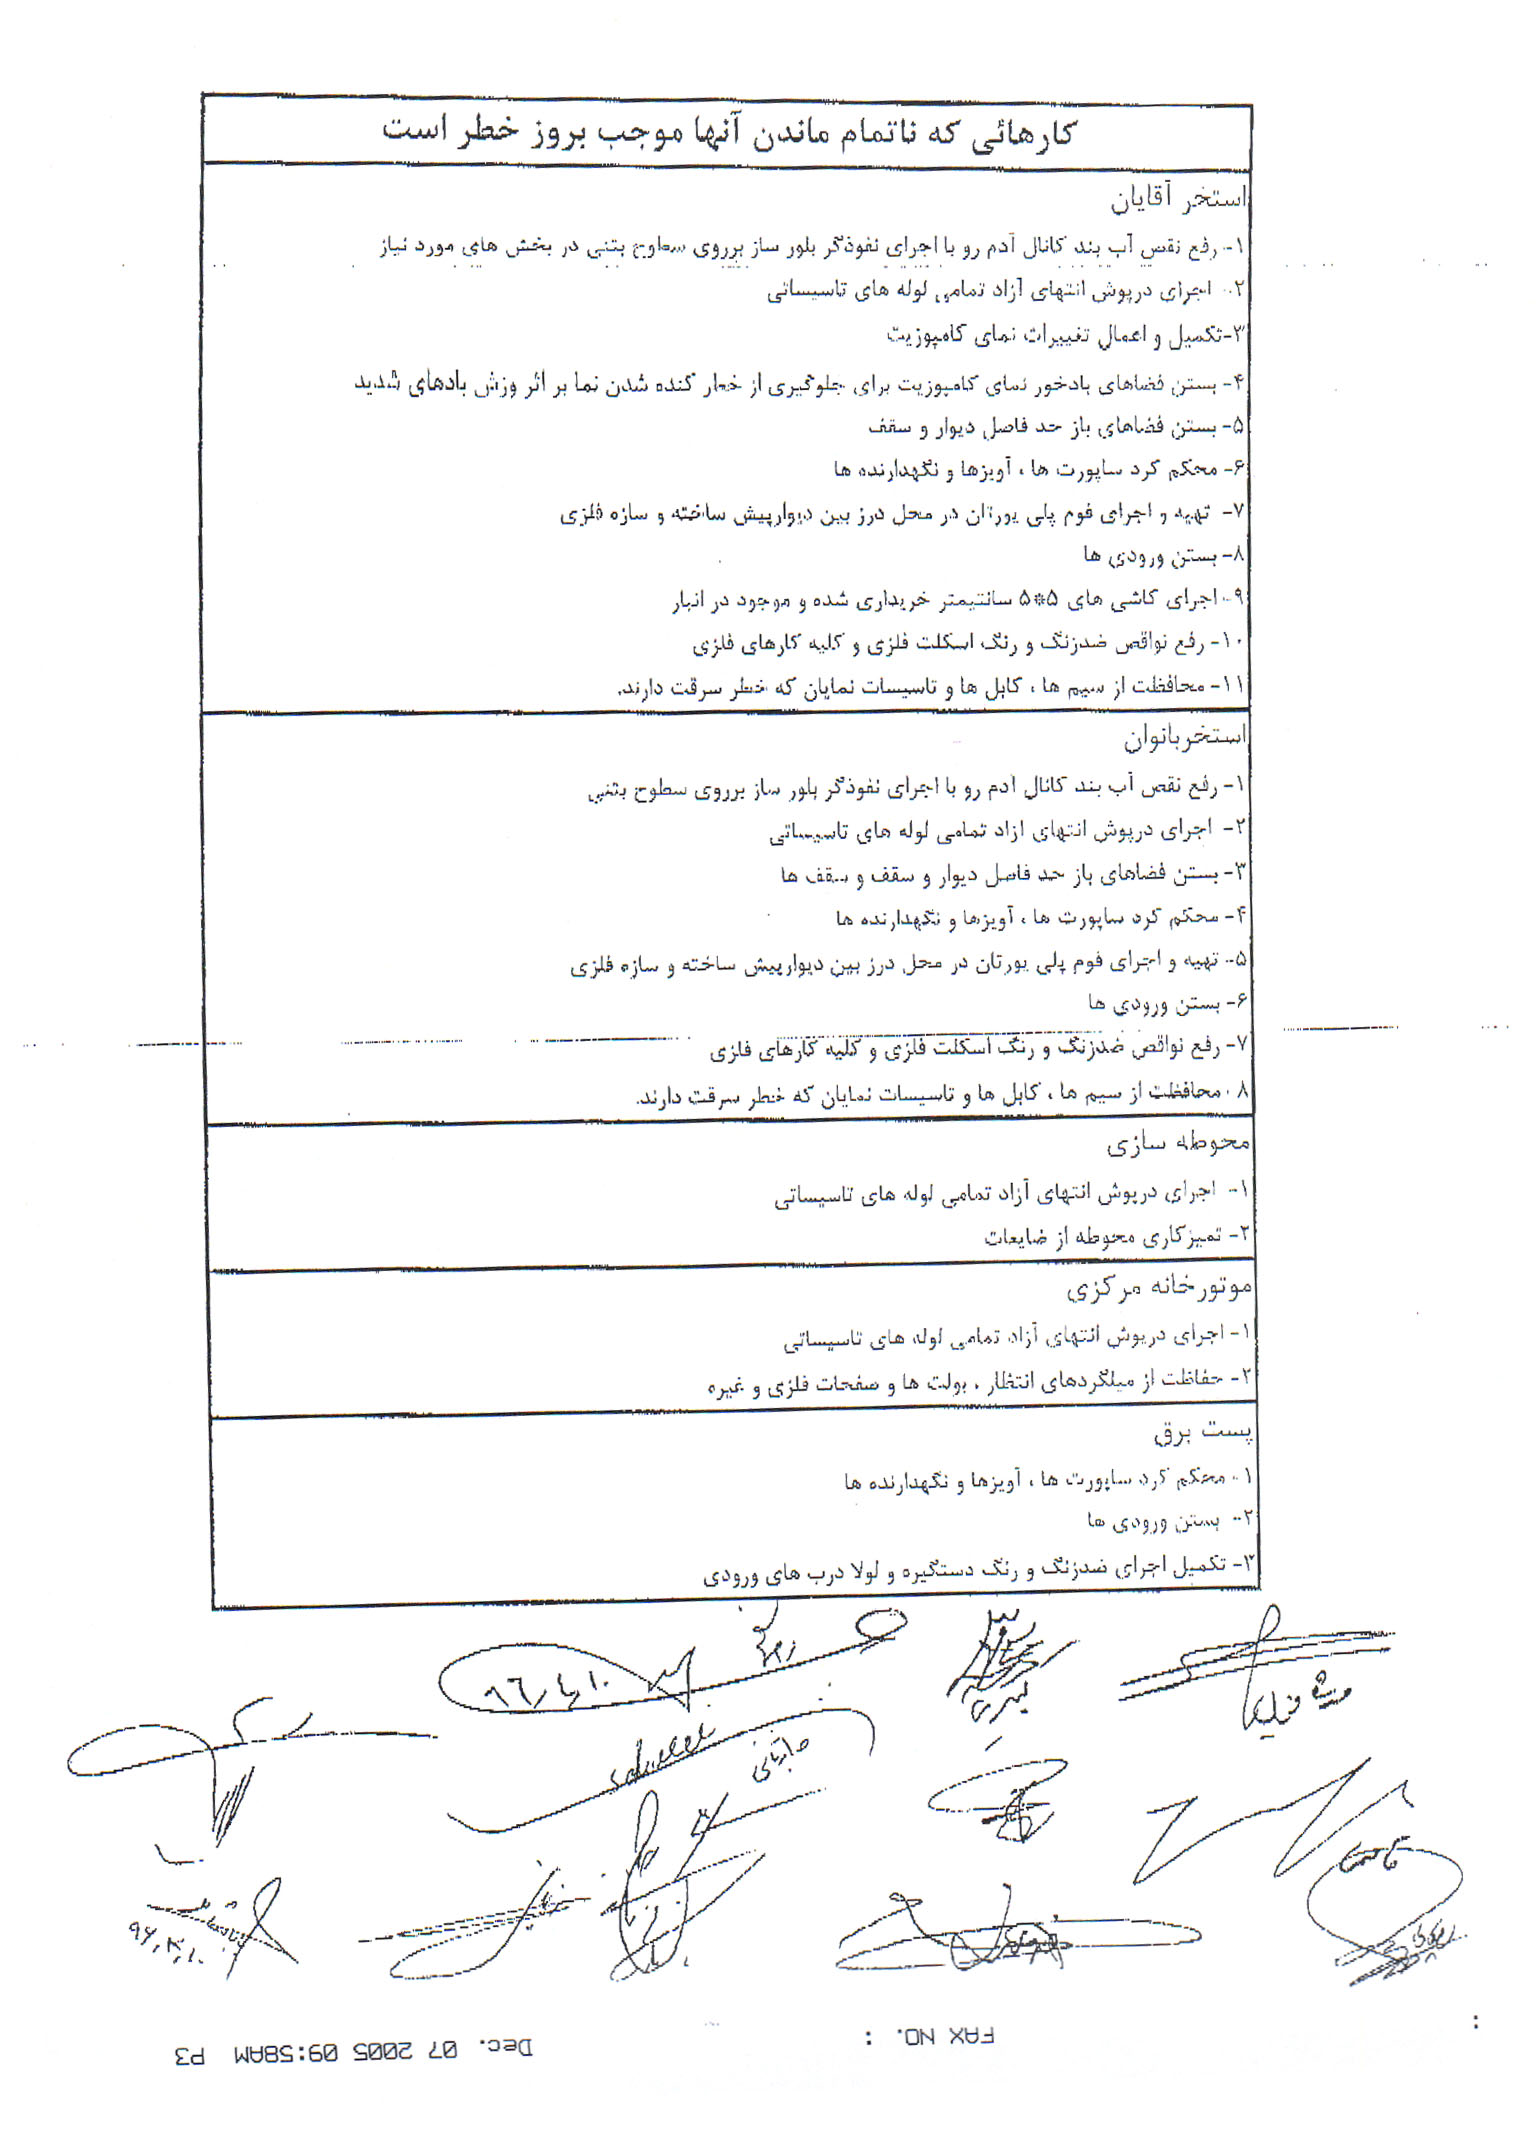 کارهائی که ناتمام ماندن آنها موجب بروز خطر است
استخر آقایان
۱- رفع نقص آب بند کانال آدم رو با اجرای نفوذگر بلور ساز برروی سطوح بتنی در بخش های مورد نیاز
۲- اجرای درپوش انتهای آزاد تمامی لوله های تاسیساتی
۳-تکمیل و اعمال تغییرات نمای کامپوزیت
۴- بستن فضاهای بادخور نمای کامپوزیت برای جلوگیری از خطر کنده شدن نما بر اثر وزش بادهای شدید
۵- بستن فضاهای باز حد فاصل دیوار و سقف
۶- محکم کرد ساپورت ها ، آویزها و نگهدارنده ها
۷- تهیه و اجرای فوم پلی یورتان در محل درز بین دیوارپیش ساخته و سازه فلزی
۸- بستن ورودی ها
۹- اجرای کاشی های ۵*۵ سانتیمتر خریداری شده و موجود در انبار
۱۰- رفع نواقص ضدزنگ و رنگ اسکلت فلزی و کلیه کارهای فلزی
۱۱- محافظت از سیم ها ، کابل ها و تاسیسات نمایان که خطر سرقت دارند.
استخربانوان
۱- رفع نقص آب بند کانال ادم رو با اجرای نفوذگر بلور ساز برروی سطوح بتنی
۲- اجرای درپوش انتهای ازاد تمامی لوله های تاسیساتی
۳- بستن فضاهای باز حد فاصل دیوار و سقف و سقف ها
۴- محکم کرد ساپورت ها ، آویزها و نگهدارنده ها
۵- تهیه و اجرای فوم پلی یورتان در محل درز بین دیوارپیش ساخته و سازه فلزی
۶- بستن ورودی ها
۷- رفع نواقص ضدزنگ و رنگ اسکلت فلزی و کلیه کارهای فلزی
۸- محافظت از سیم ها ، کابل ها و تاسیسات نمایان که خطر سرقت دارند.
محوطه سازی
۱- اجرای درپوش انتهای آزاد تمامی لوله های تاسیساتی
۲- تمیزکاری محوطه از ضایعات
موتورخانه مرکزی
۱- اجرای درپوش انتهای آزاد تمامی لوله های تاسیساتی
۲- حفاظت از میلگردهای انتظار ، بولت ها و صفحات فلزی و غیره
پست برق
۱- محکم کرد ساپورت ها ، آویزها و نگهدارنده ها
۲- بستن ورودی ها
۳- تکمیل اجرای ضدزنگ و رنگ دستگیره و لولا درب های ورودی
۹۶٫۳٫۱۰
FAX NO. :
Dec. 07 2005 09:58AM P3